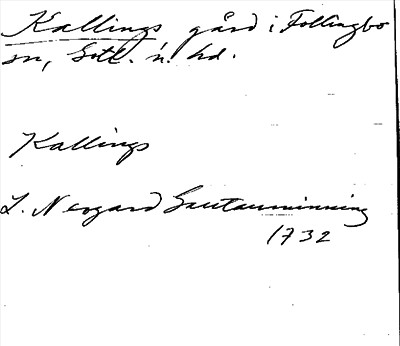 Kallings gård i Follingbo
sn, Gotl. n. hd.
Kallings
L. Neogard Gautauminning
1732